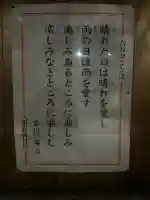 今月のことば
晴れた日は晴れを愛し
雨の日は雨を愛す
楽しみあるところに楽しみ
楽しみなきところに楽しむ
吉川 英治